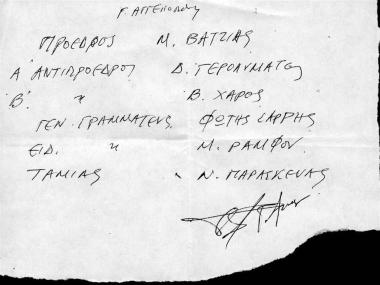 Γ. ΑΓΓΕΛΟΠΟΥΛΟΣ
ΠΡΟΕΔΡΟΣ Μ. ΒΑΤΖΙΑΣ
Α' ΑΝΤΙΠΡΟΕΔΡΟΣ Δ. ΓΕΡΟΛΥΜΑΤΟΣ
Β' " Β. ΧΑΡΟΣ
ΓΕΝ. ΓΡΑΜΜΑΤΕΥΣ ΦΩΤΗΣ ΣΑΡΡΗΣ
ΕΙΔ. " Μ. ΡΑΜΦΟΥ
ΤΑΜΙΑΣ Ν. ΠΑΡΑΣΚΕΥΑΣ